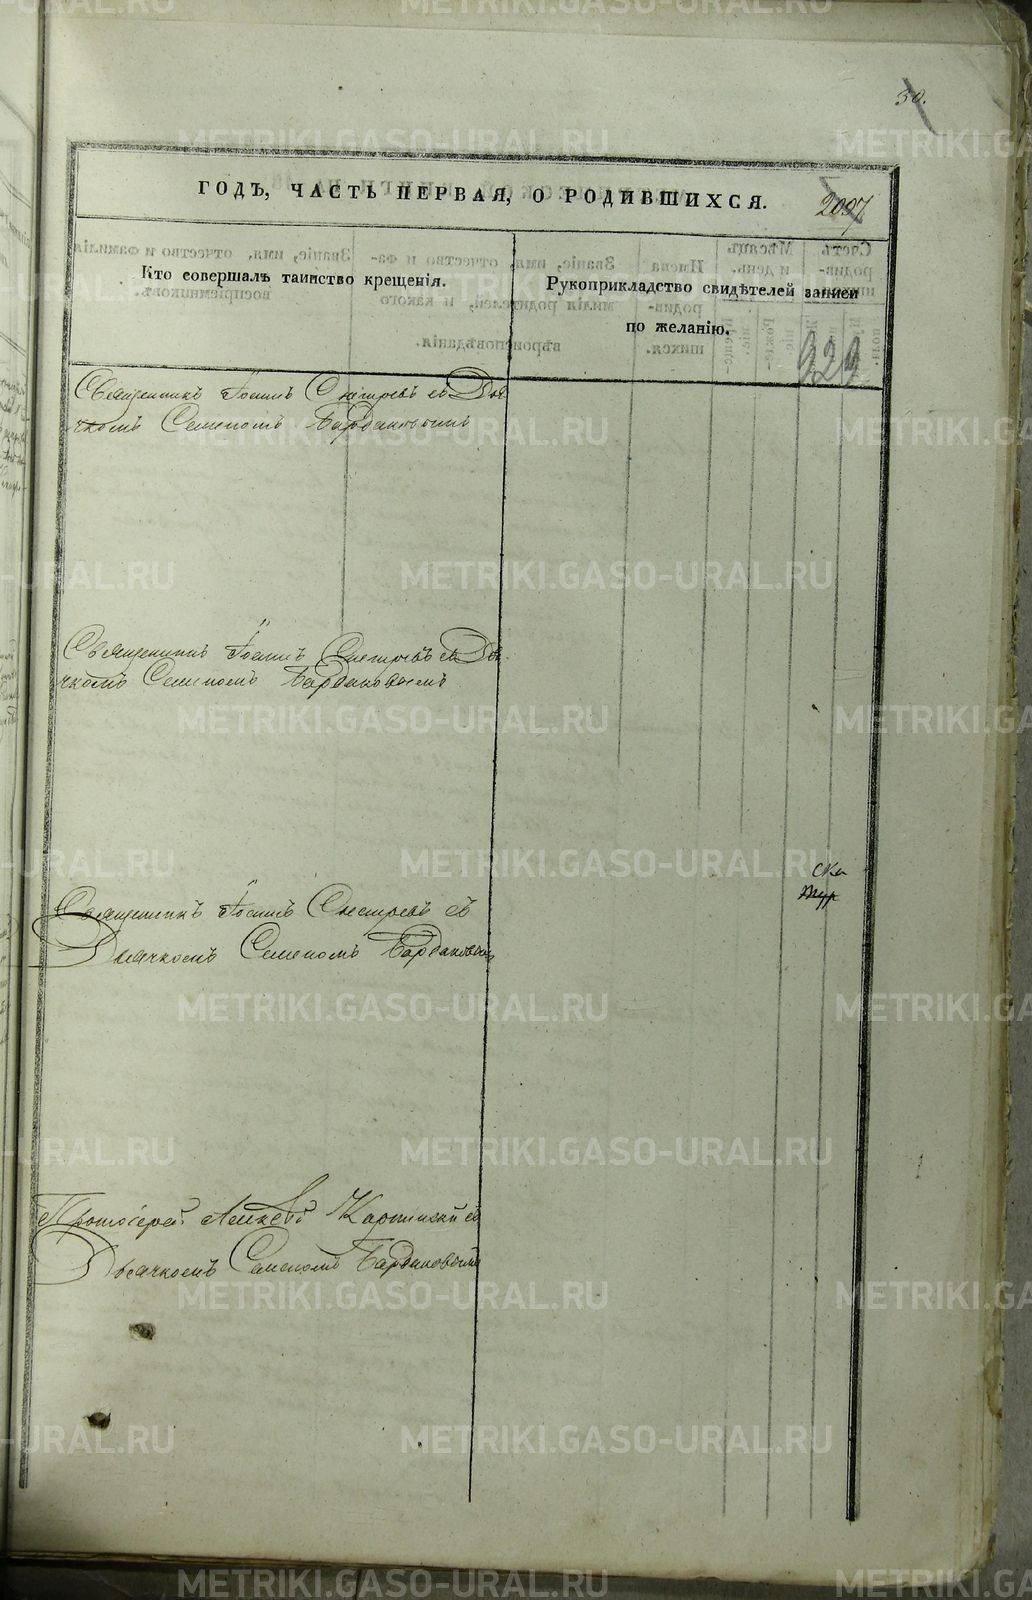 30.
ГОДЪ, ЧАСТЬ ПЕРВАЯ, О РОДИВШИХСЯ.
2007
Кто совершалъ таинство крещенія.
Рукоприкладство свидѣтелей записи
по желанію.
929
Священникъ Іоаннъ съ Дья
чкомъ Семеномъ Бардаковымъ
Священникъ Іоаннъ съ Дья
чкомъ Семеномъ Бардаковымъ
Священникъ Іоаннъ съ
Дьячкомъ Семеномъ Бардаковымъ
Протоіерей Алексѣй Карпинскій съ
Дьячкомъ Семеномъ Бардаковымъ
METRIKI.GASO-URAL.RU